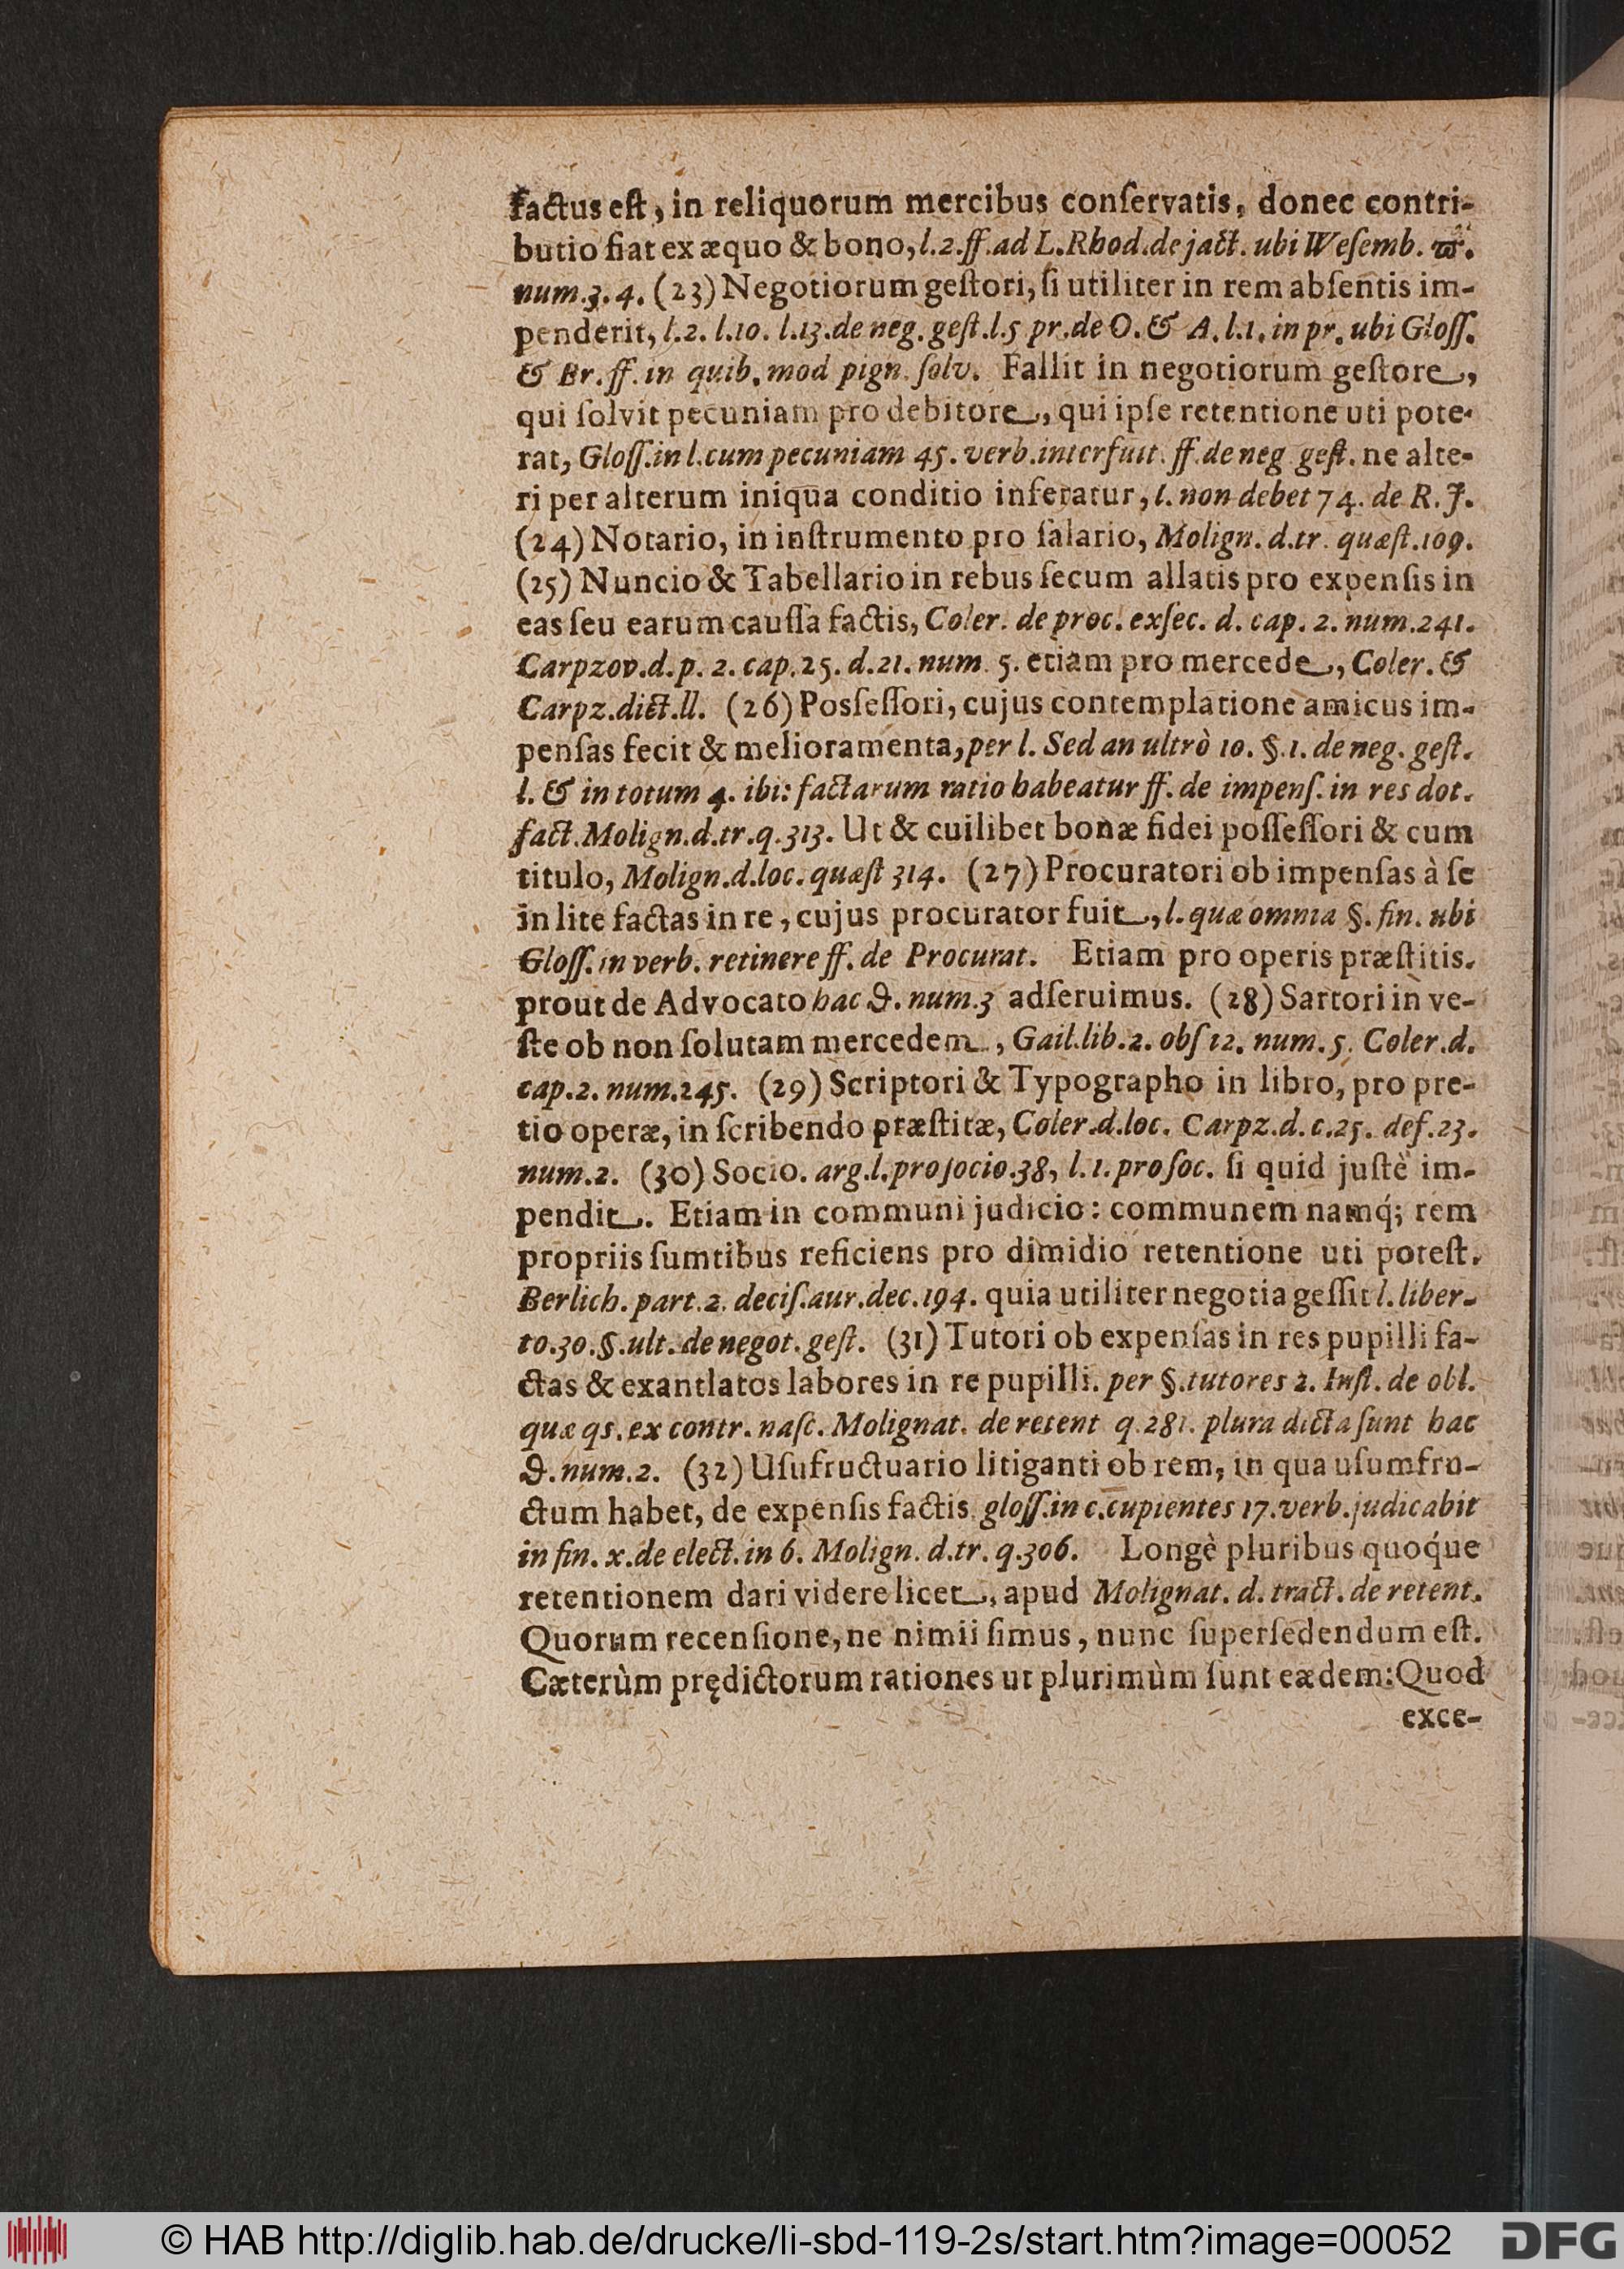 factus eſt, in reliquorum mercibus conſervatis, donec contri-
butio fiat ex æquo & bono, l. 2. ff. ad L. Rhod. de jact. ubi Weſemb. ϖ.
num. 3. 4. (23) Negotiorum geſtori, ſi utiliter in rem abſentis im-
penderit, l. 2. l. 10. l. 13. de neg. geſt. l. 5 pr. de O. & A. l. 1. in pr. ubi Gloſſ.
& Br. ff. in quib. mod pign. ſolv. Fallit in negotiorum geſtore,
qui ſolvit pecuniam pro debitore, qui ipſe retentione uti pote-
rat, Gloſſ. in l. cum pecuniam 45. verb. interfuit. ff. de neg geſt. ne alte-
ri per alterum iniqua conditio inferatur, l. non debet 74. de R. J.
(24) Notario, in inſtrumento pro ſalario, Molign. d. tr. quæſt. 109.
(25) Nuncio & Tabellario in rebus ſecum allatis pro expenſis in
eas ſeu earum cauſſa factis, Coler. de proc. exſec. d. cap. 2. num. 241.
Carpzov. d. p. 2. cap. 25. d. 21. num. 5. etiam pro mercede, Coler. &
Carpz. dict. ll. (26) Posſeſſori, cujus contemplatione amicus im-
penſas fecit & melioramenta, per l. Sed an ultrò 10. §. 1. de neg. geſt.
l. & in totum 4. ibi: factarum ratio habeatur ff. de impenſ. in res dot.
fact. Molign. d. tr. q. 313. Ut & cuilibet bonæ fidei poſſeſſori & cum
titulo, Molign. d. loc. quæſt 314. (27) Procuratori ob impenſas à ſe
in lite factas in re, cujus procurator fuit, l. quæ omnia §. fin. ubi
Gloſſ. in verb. retinere ff. de Procurat. Etiam pro operis præſtitis.
prout de Advocato hac ϑ. num. 3 adſeruimus. (28) Sartori in ve-
ſte ob non ſolutam mercedem, Gail. lib. 2. obſ 12. num. 5. Coler. d.
cap. 2. num. 245. (29) Scriptori & Typographo in libro, pro pre-
tio operæ, in ſcribendo præſtitæ, Coler. d. loc. Carpz. d. c. 25. def. 23.
num. 2. (30) Socio. arg. l. pro ſocio. 38, l. 1. pro ſoc. ſi quid juſtè im-
pendit. Etiam in communi judicio: communem namq́; rem
propriis ſumtibus reficiens pro dimidio retentione uti poteſt.
Berlich. part. 2. deciſ. aur. dec. 194. quia utiliter negotia geſſit l. liber-
to. 30. §. ult. de negot. geſt. (31) Tutori ob expenſas in res pupilli fa-
ctas & exantlatos labores in re pupilli. per §. tutores 2. Inſt. de obl.
quæ qs. ex contr. naſc. Molignat. de retent q. 281. plura dicta ſunt hac
ϑ. num. 2. (32) Uſufructuario litiganti ob rem, in qua uſumfru-
ctum habet, de expenſis factis gloſſ. in c. cupientes 17. verb. judicabit
in fin. x. de elect. in 6. Molign. d. tr. q. 306. Longè pluribus quoq́ue
retentionem dari videre licet, apud Molignat. d. tract. de retent.
Quorum recenſione, ne nimii ſimus, nunc ſuperſedendum eſt.
Cæterùm prędictorum rationes ut plurimùm ſunt eædem: Quod
exce-
© HAB http://diglib.hab.de/drucke/li-sbd-119-2s/start.htm?image=00052
DFG